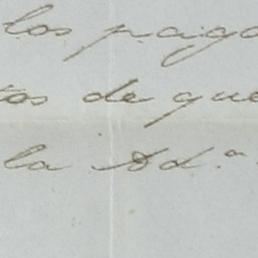 los pago
tos de que
la Ad.ª